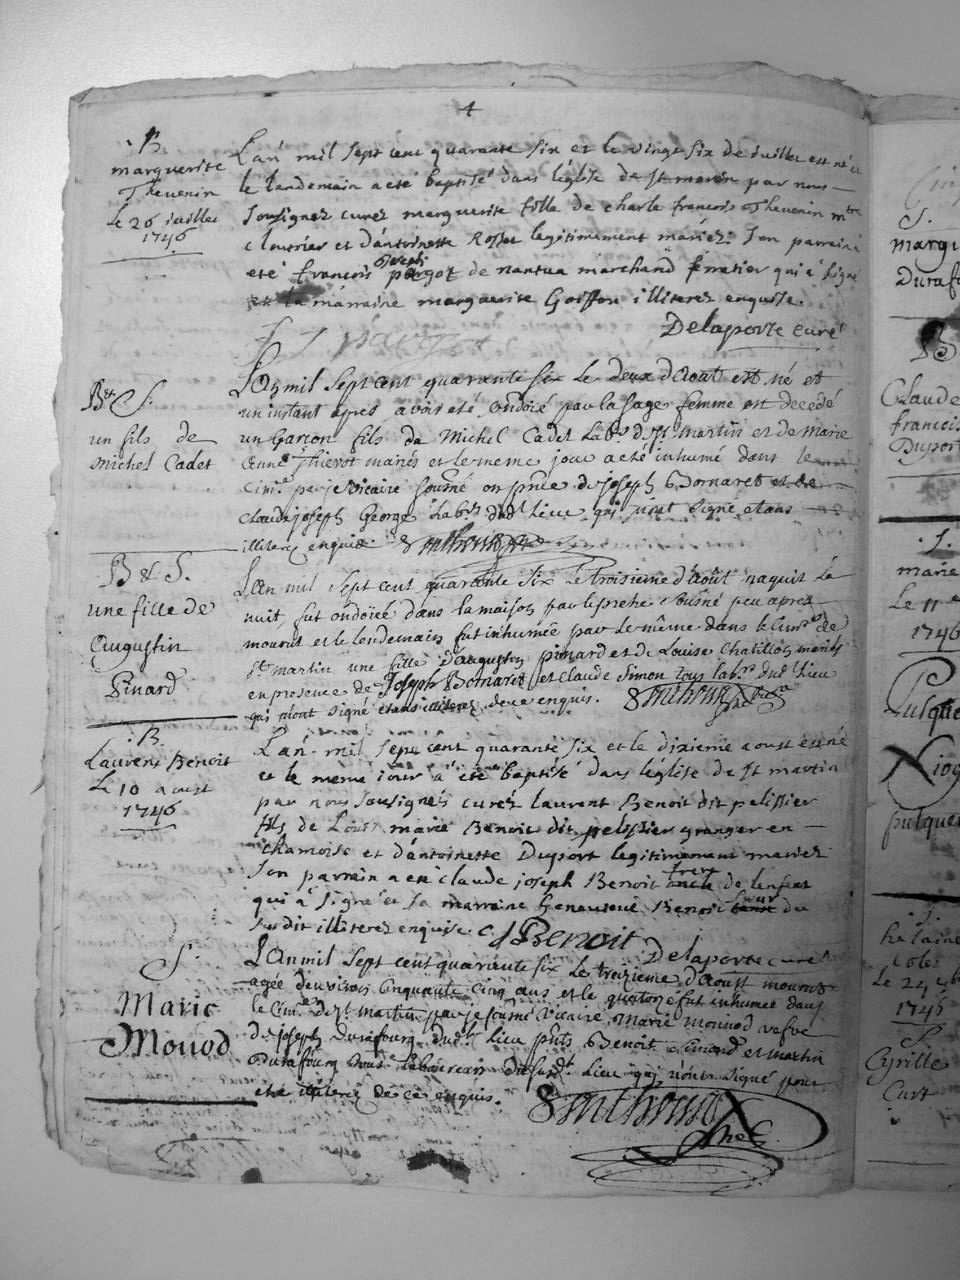 4
B
marguerite
Thevenin
le 26 juillet
1746
L'an mil sept cent quarante six et le vingt six de juillet est né et
le landemain a eté baptisé dans l'église de st martin par nous
soussignez curez marguerite fille de charle francois Thevenin mtre
cloutrier et d'antoinette Rosset legitimement mariez. Son parrain a
eté francois joseph pargoz de nantua marchand ferratier qui a signé
et la marraine marguerite Goiffon illiterez enquise.
Delaporte curé
f j pargoz
Bt et S.
un fils de
Michel Cadet
L'an mil sept cent quarante six le deux d'Aout est né et
un instant apres avoir eté ondoié par la sage femme est decedé
un Garcon fils de Michel Cadet Labr. de St. Martin et de Marie
Anne Thievot mariés et le meme jour a eté inhumé dans le
Cime. par je vicaire soussné en pnce de joseph Bornarel et de
claude joseph George Labrs. dudt lieu qui n'ont signé etans
illiterez enquis.
B et S.
une fille de
Augustin
Pinard
L'an mil sept cent quarante six le troisieme d'Août naquit le
nuit, fut ondoiée dans la maison par le pretre sousné peu apres
mourut et le lendemain fut inhumée par le même dans le Cimre. de
St. martin une fille d'augustin pinard et de Louise Chatillon mariés
en presence de Joseph Bornarel et Claude Simon tous labrs. dudt lieu
qui n'ont signé etans illiterez de ce enquis.
B.
Laurent Benoit
le 10 aoust
1746
L'an mil sept cent quarante six et le dixieme aoust est né
et le même jour a été baptisé dans l'église de st martin
par nous soussignés curéz laurent Benoit dit pelissier
fils de Louis marie Benoit dit pelissier granger en
chamoise et d'antoinette Duport legitimement mariez
son parrain a eté claude joseph Benoit oncle frere de l'enfant
qui a signé et sa marraine Geneuieue Benoit tante sœur du
susdit illiterez enquise. CJ Benoit
Delaporte curé
S.
Marie
Monod
L'An mil sept cent quarante six le treizieme d'Aoust mourut
agée d'environ cinquante cinq ans et le quatorze fut inhumée dans
le Cimre. de st martin par je sousné vicaire Marie Monod vefve
de joseph Durafourg dudt. lieu pnts Benoit Pinard et martin
Durafourg tous laboureurs dudt. lieu qui n'ont signé pour
etre illiterez de ce enquis.
S.
margu
Durafo
B
Claude
francois
Duport
S.
marie
Le 11e
1746
S.
helaine
1746
S
Cyrille
Curt